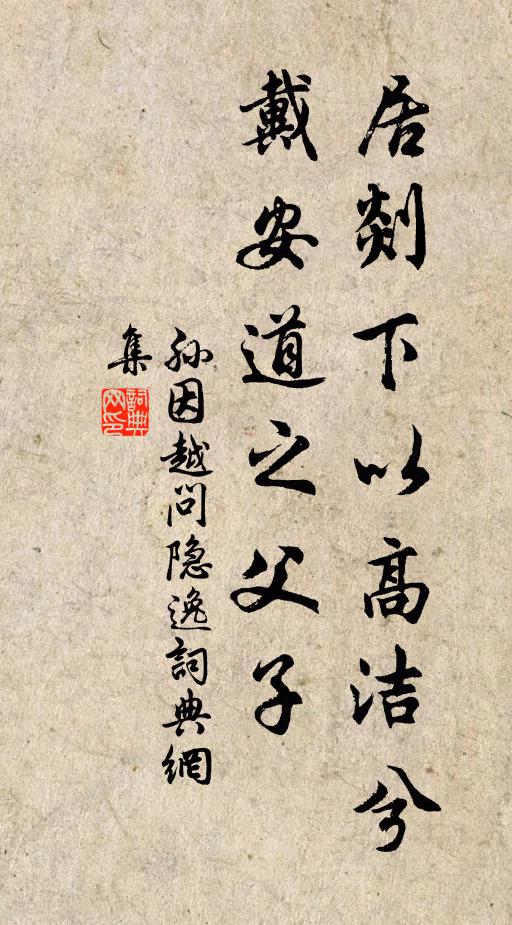 居剡下以高洁兮
戴安道之父子
孙因越问隐逸詞典網
集
詞典
网印